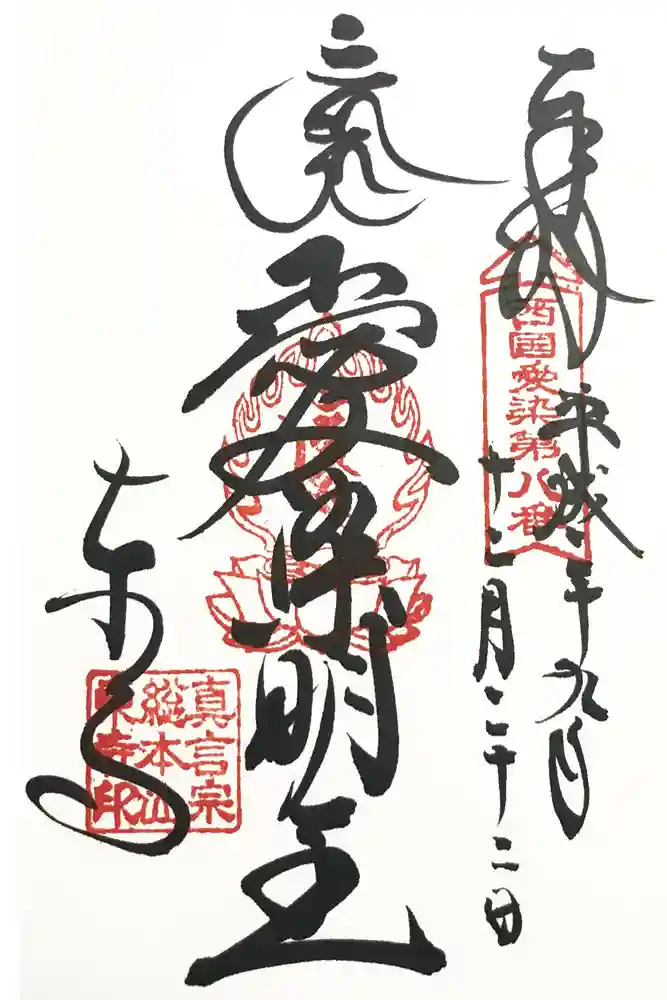 奉拝
西國愛染第八番
平成二十九年
十二月二十二日
愛染明王
東寺
真言宗
総本山
東寺印